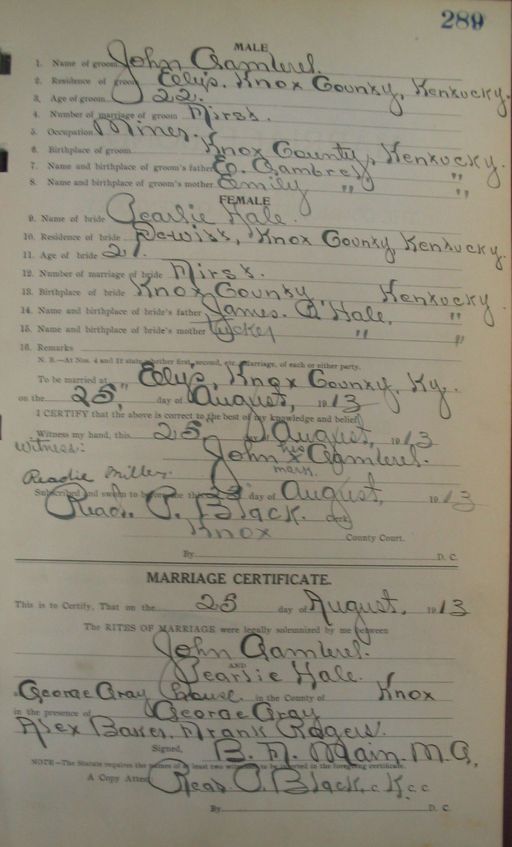 289
MALE
1. Name of groom John Gambrel.
2. Residence of groom Eelys. Knox County, Kenkucky.
3. Age of groom 22.
4. Number of marriage of groom Firsk.
5. Occupation Miner.
6. Birthplace of groom Knox County, Kenkucky.
7. Name and birthplace of groom's father E. Gambrel "
8. Name and birthplace of groom's mother Emily " "
FEMALE
9. Name of bride Pearlie Hale.
10. Residence of bride Knox County Kenkucky.
11. Age of bride 21.
12. Number of marriage of bride Firsk.
13. Birthplace of bride Knox County Kenkucky.
14. Name and birthplace of bride's father James. Hale, "
15. Name and birthplace of bride's mother " "
16. Remarks
N. B.—At Nos. 4 and 12 state whether first, second, etc. marriage, of each or either party.
To be married at Eelys, Knox County, Ky.
on the 25, day of August, 1913
I CERTIFY that the above is correct to the best of my knowledge and belief.
Witness my hand, this 25, August, 1913.
Witness: his
John x Gambrel.
Readie Miller. mark.
Subscribed and sworn to before me this 25 day of August, 19 13
Read. P. Black. Clerk
Knox County Court.
By D. C.
MARRIAGE CERTIFICATE.
This is to Certify, That on the 25 day of August, 1913
The RITES OF MARRIAGE were legally solemnized by me between
John Gambrel.
AND
Pearlie Hale.
George Gray House in the County of Knox
in the presence of George Gray
Frank Rogers.
Signed, B. F. Main. M. G,
NOTE—The Statute requires the names of at least two witnesses to be inserted in the foregoing certificate.
A Copy Attest Read. P. Black, c K c c
By D. C.